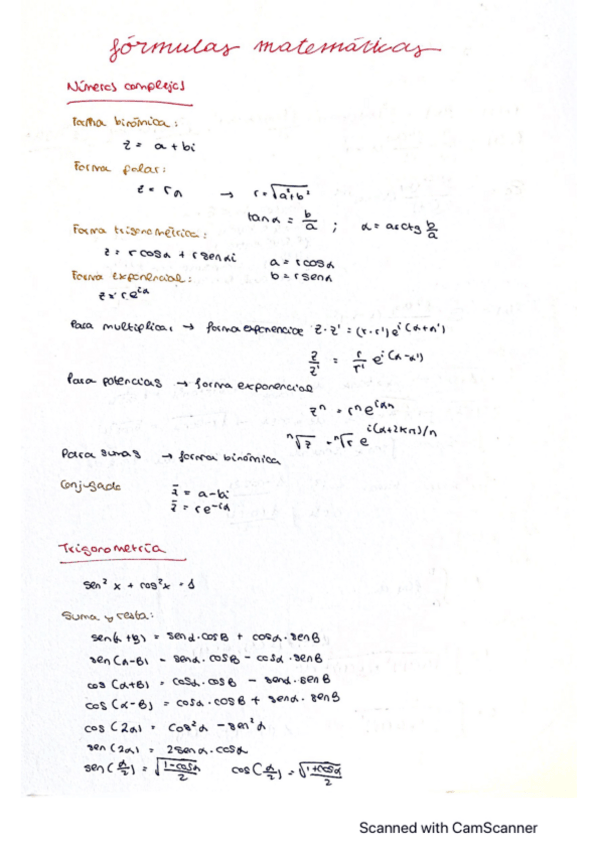 fórmulas matemáticas
Números complejos
Forma binómica:
z = a + bi
Forma polar:
z = r α → r = √a²+b²
tan α = b/a ; α = arctg b/a
Forma trigonométrica:
z = r cos α + r sen α i a = r cos α
Forma exponencial: b = r sen α
z = r e^iα
Para multiplicar → forma exponencial z · z' = (r · r') e^i(α+α')
z/z' = r/r' e^i(α-α')
Para potencias → forma exponencial
z^n = r^n e^iαn
ⁿ√z = ⁿ√r e^i(α+2kπ)/n
Para sumas → forma binómica
Conjugado z̄ = a - bi
z̄ = r e^-iα
Trigonometría
sen² x + cos² x = 1
Suma y resta:
sen(α+β) = sen α · cos β + cos α · sen β
sen(α-β) = sen α · cos β - cos α · sen β
cos(α+β) = cos α · cos β - sen α · sen β
cos(α-β) = cos α · cos β + sen α · sen β
cos(2α) = cos² α - sen² α
sen(2α) = 2 sen α · cos α
sen(α/2) = √1-cos α/2 cos(α/2) = √1+cos α/2
Scanned with CamScanner